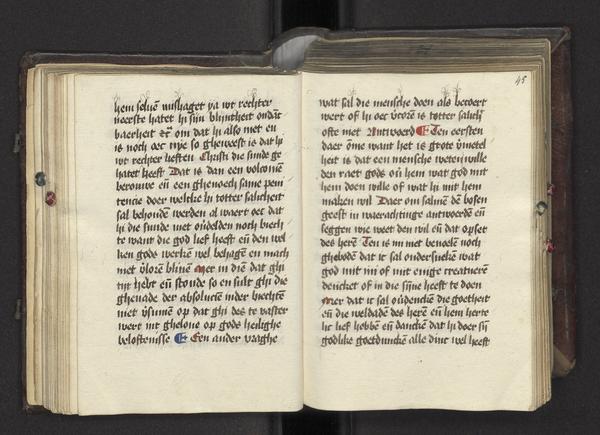 hem seluē mishaget ya wt rechter
neerste hatet hi sijn blijntheit ondāc
baerheit etc̄ om dat hi also niet en
is noch oec nye so gheweest is dat hi
wt rechter lieften Christi die sunde ge
hatet heeft Dat is dan een volcomē
berouwe eñ een ghenoech same peni
tencie doer welcke hi totter salicheit
sal behoudē werden al waert oec dat
hi die sunde niet oūdelden noch biech
te want die god lief heeft eñ den wel
ken gods werkē wel behagē en mach
niet v̄lorē bliuē Mer in diē dat ghi
tijt hebt eñ stonde so en sult ghi die
ghenade der absolucie inder biechtē
niet v̄sumē op dat ghi des te vaster
wert int gheloue op gods heilighe
beloftenisse Een ander vraghe
45
wat sal die mensche doen als becoert
wert of hi oec v̄corē is totter salich
ofte niet Antwoerd Ten eersten
daer ōme want het is grote v̄metel
heit is dat een mensche weten wille
den raet gods oū hem wat god mit
hem doen wille of wat hi mit hem
maken wil Daer om salmē dē bosen
geest in waerachtinge antwoerdē eñ
seggen wie weet den wil eñ dat opset
des herē Ten is mi niet beuolē noch
ghebodē dat ic sal ondersuekē wat
god mit mi of mit enige creatuerē
dencket of in die sijne heeft te doen
Mer dat ic sal oūdenckē die goetheit
eñ die weldadē des herē eñ hem herte
lic lief hebbē eñ danckē dat hi doer sij
godlike goetduncken alle dinc wel heeft